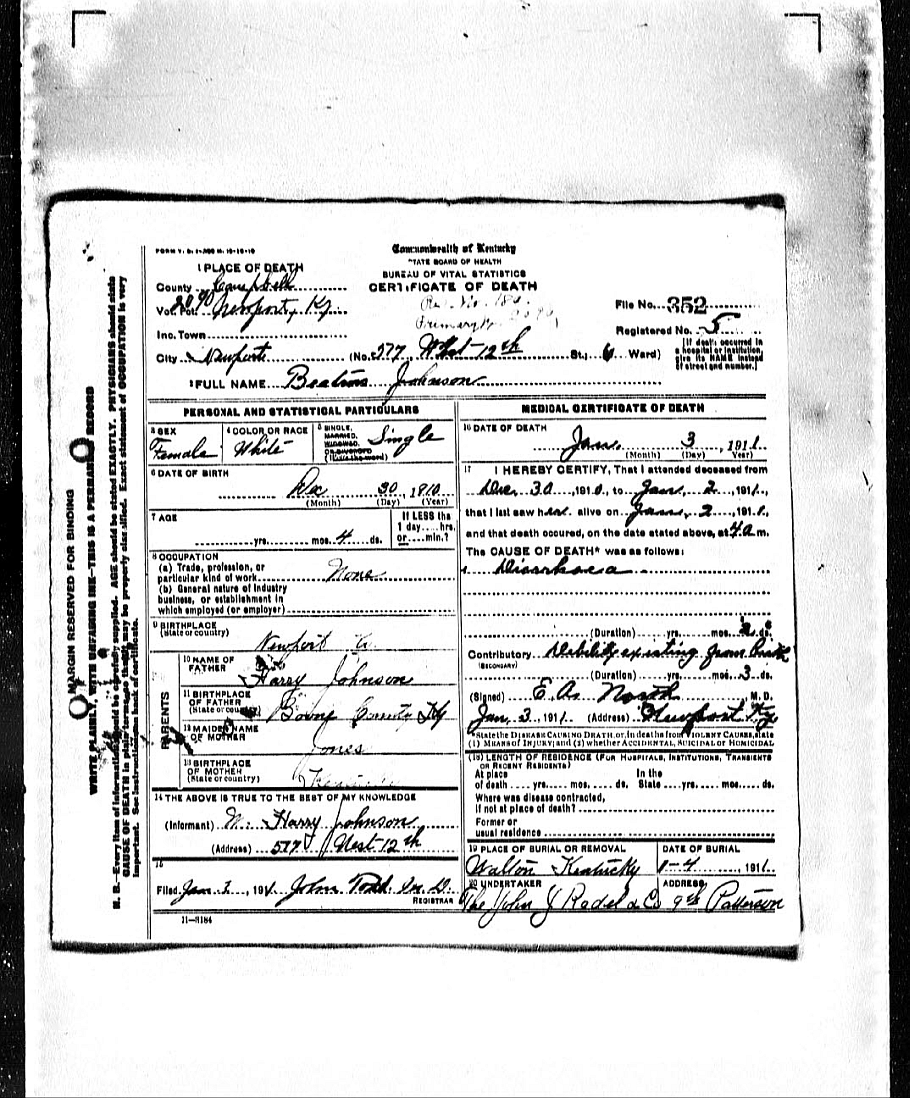 FORM V. S. 1-
Commonwealth of Kentucky
STATE BOARD OF HEALTH
BUREAU OF VITAL STATISTICS
CERTIFICATE OF DEATH
1 PLACE OF DEATH
County Campbell
Vot. Pct. 2090 Newport, Ky
Inc. Town
City Newport (No. 577 West 12th St.; 6 Ward)
File No. 352
Registered No. 5
[If death occurred in a hospital or institution, give its NAME instead of street and number.]
2 FULL NAME Johnson
PERSONAL AND STATISTICAL PARTICULARS
3 SEX Female
4 COLOR OR RACE White
5 SINGLE, MARRIED, WIDOWED, OR DIVORCED (Write the word) Single
6 DATE OF BIRTH
Dec 30, 1910
(Month) (Day) (Year)
7 AGE
yrs. mos. 4 ds.
If LESS than 1 day hrs. or min.?
8 OCCUPATION
(a) Trade, profession, or particular kind of work None
(b) General nature of industry business, or establishment in which employed (or employer)
9 BIRTHPLACE (State or country)
Newport
PARENTS
10 NAME OF FATHER Harry Johnson
11 BIRTHPLACE OF FATHER (State or country) Boone County Ky
12 MAIDEN NAME OF MOTHER Jones
13 BIRTHPLACE OF MOTHER (State or country)
14 THE ABOVE IS TRUE TO THE BEST OF MY KNOWLEDGE
(Informant) Harry Johnson
(Address) 577 West 12th
15
Filed Jan 3, 191 John Todd M. D.
REGISTRAR
11-3184
MEDICAL CERTIFICATE OF DEATH
16 DATE OF DEATH
Jan. 3, 1911.
(Month) (Day) (Year)
17 I HEREBY CERTIFY, That I attended deceased from
Dec. 30, 1910, to Jan. 2, 1911,
that I last saw her alive on Jan. 2, 1911,
and that death occured, on the date stated above, at 4 a m.
The CAUSE OF DEATH* was as follows:
Diarrhoea
(Duration) yrs. mos. 2 ds.
Contributory Debility existing from birth
(SECONDARY)
(Duration) yrs. mos. 3 ds.
(Signed) E. A. North M. D.
Jan. 3, 1911. (Address) Newport Ky
*State the DISEASE CAUSING DEATH, or, in deaths from VIOLENT CAUSES, state (1) MEANS OF INJURY; and (2) whether ACCIDENTAL, SUICIDAL or HOMICIDAL
(18) LENGTH OF RESIDENCE (FOR HOSPITALS, INSTITUTIONS, TRANSIENTS OR RECENT RESIDENTS)
At place of death yrs. mos. ds. In the State yrs. mos. ds.
Where was disease contracted, if not at place of death?
Former or usual residence
19 PLACE OF BURIAL OR REMOVAL
Walton Kentucky
DATE OF BURIAL
1-4, 1911.
20 UNDERTAKER
The John J Radel & Co
ADDRESS
9th Patterson
MARGIN RESERVED FOR BINDING
WRITE PLAINLY, WITH UNFADING INK—THIS IS A PERMANENT RECORD
N. B.—Every item of information should be carefully supplied. AGE should be stated EXACTLY. PHYSICIANS should state
CAUSE OF DEATH in plain terms, that it may be properly classified. Exact statement of OCCUPATION is very
important. See instructions on back of certificate.